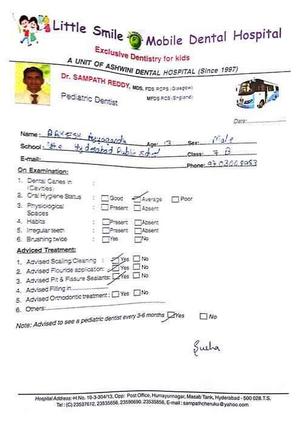 Little Smile Mobile Dental Hospital
Exclusive Dentistry for kids
A UNIT OF ASHWINI DENTAL HOSPITAL (Since 1997)
Dr. SAMPATH REDDY, MDS, FDS RCPS (Glasgow)
Pediatric Dentist MFDS RCS (England)
Date:
Name: Age: 13 Sex: Male
School: The Hyderabad Public School Class: 7 B
E-mail: Phone:
On Examination:
1. Dental Caries in Cavities:
2. Oral Hygiene Status : Good Average Poor
3. Physiological Spaces : Present Absent
4. Habits : Present Absent
5. Irregular teeth : Present Absent
6. Brushing twice : Yes No
Adviced Treatment:
1. Advised Scaling Cleaning : Yes No
2. Advised Flouride application: Yes No
3. Advised Pit & Fissure Sealants: Yes No
4. Advised Filling in
5. Advised Orthodontic treatment : Yes No
6. Others:
Note: Advised to see a pediatric dentist every 3-6 months Yes No
Hospital Address: H.No. 10-3-304/13, Opp: Post Office, Humayunnagar, Masab Tank, Hyderabad - 500 028. T.S.
Tel: (C) 23537612, 23535656, 23590690, 23535856, E-mail: sampathcheruku@yahoo.com